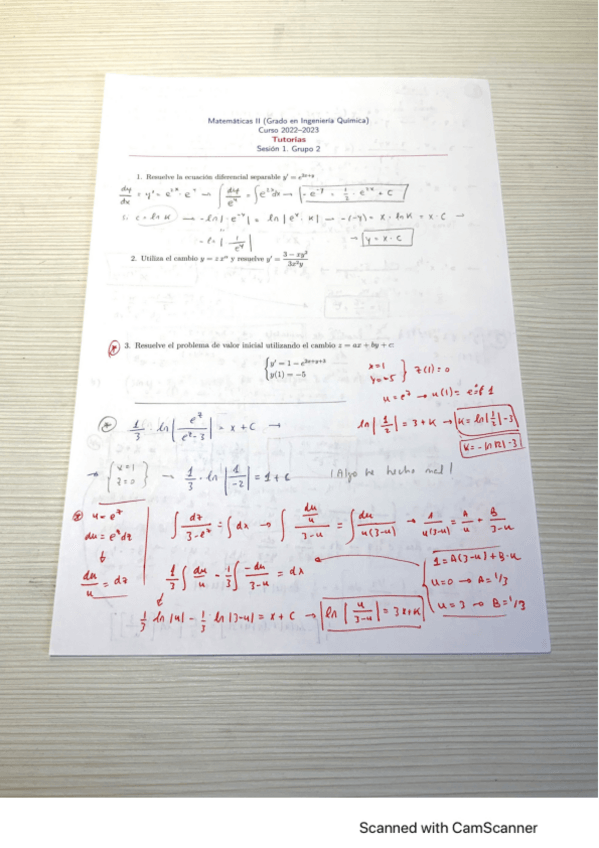 Matemáticas II (Grado en Ingeniería Química)
Curso 2022–2023
Tutorías
Sesión 1. Grupo 2
1. Resuelve la ecuación diferencial separable y' = e^{2x+y}
dy/dx = y' = e^{2x} · e^y → ∫ dy/e^y = ∫ e^{2x} dx → -e^{-y} = 1/2 · e^{2x} + C
C = ln K → -ln|e^{-y}| = ln|e^x · K| → -(-y) = x · ln K = x · C →
-ln|1/e^y| → y = x · C
2. Utiliza el cambio y = z x^α y resuelve y' = (3 − xy²)/(3x²y)
3. Resuelve el problema de valor inicial utilizando el cambio z = ax + by + c:
{ y' = 1 − e^{3x+y+2}
y(1) = −5
x=1
y=-5 } z(1)=0
u = e^z → u(1) = e^0 = 1
1/3 · ln|e^z/(e^z-3)| = x + C →
ln|1/2| = 3 + K → K = ln|1/2| - 3
K = -ln|2| - 3
→ { x=1
z=0 } → 1/3 · ln|1/-2| = 1 + C
¡Algo he hecho mal!
u = e^z
du = e^z dz
du/u = dz
∫ dz/(3-e^z) = ∫ dx → ∫ (du/u)/(3-u) = ∫ du/(u(3-u)) → 1/(u(3-u)) = A/u + B/(3-u)
1 = A(3-u) + B·u
u=0 → A = 1/3
u=3 → B = 1/3
1/3 ∫ du/u - 1/3 ∫ -du/(3-u) = dx
1/3 ln|u| - 1/3 · ln|3-u| = x + C → ln|u/(3-u)| = 3x + K
Scanned with CamScanner